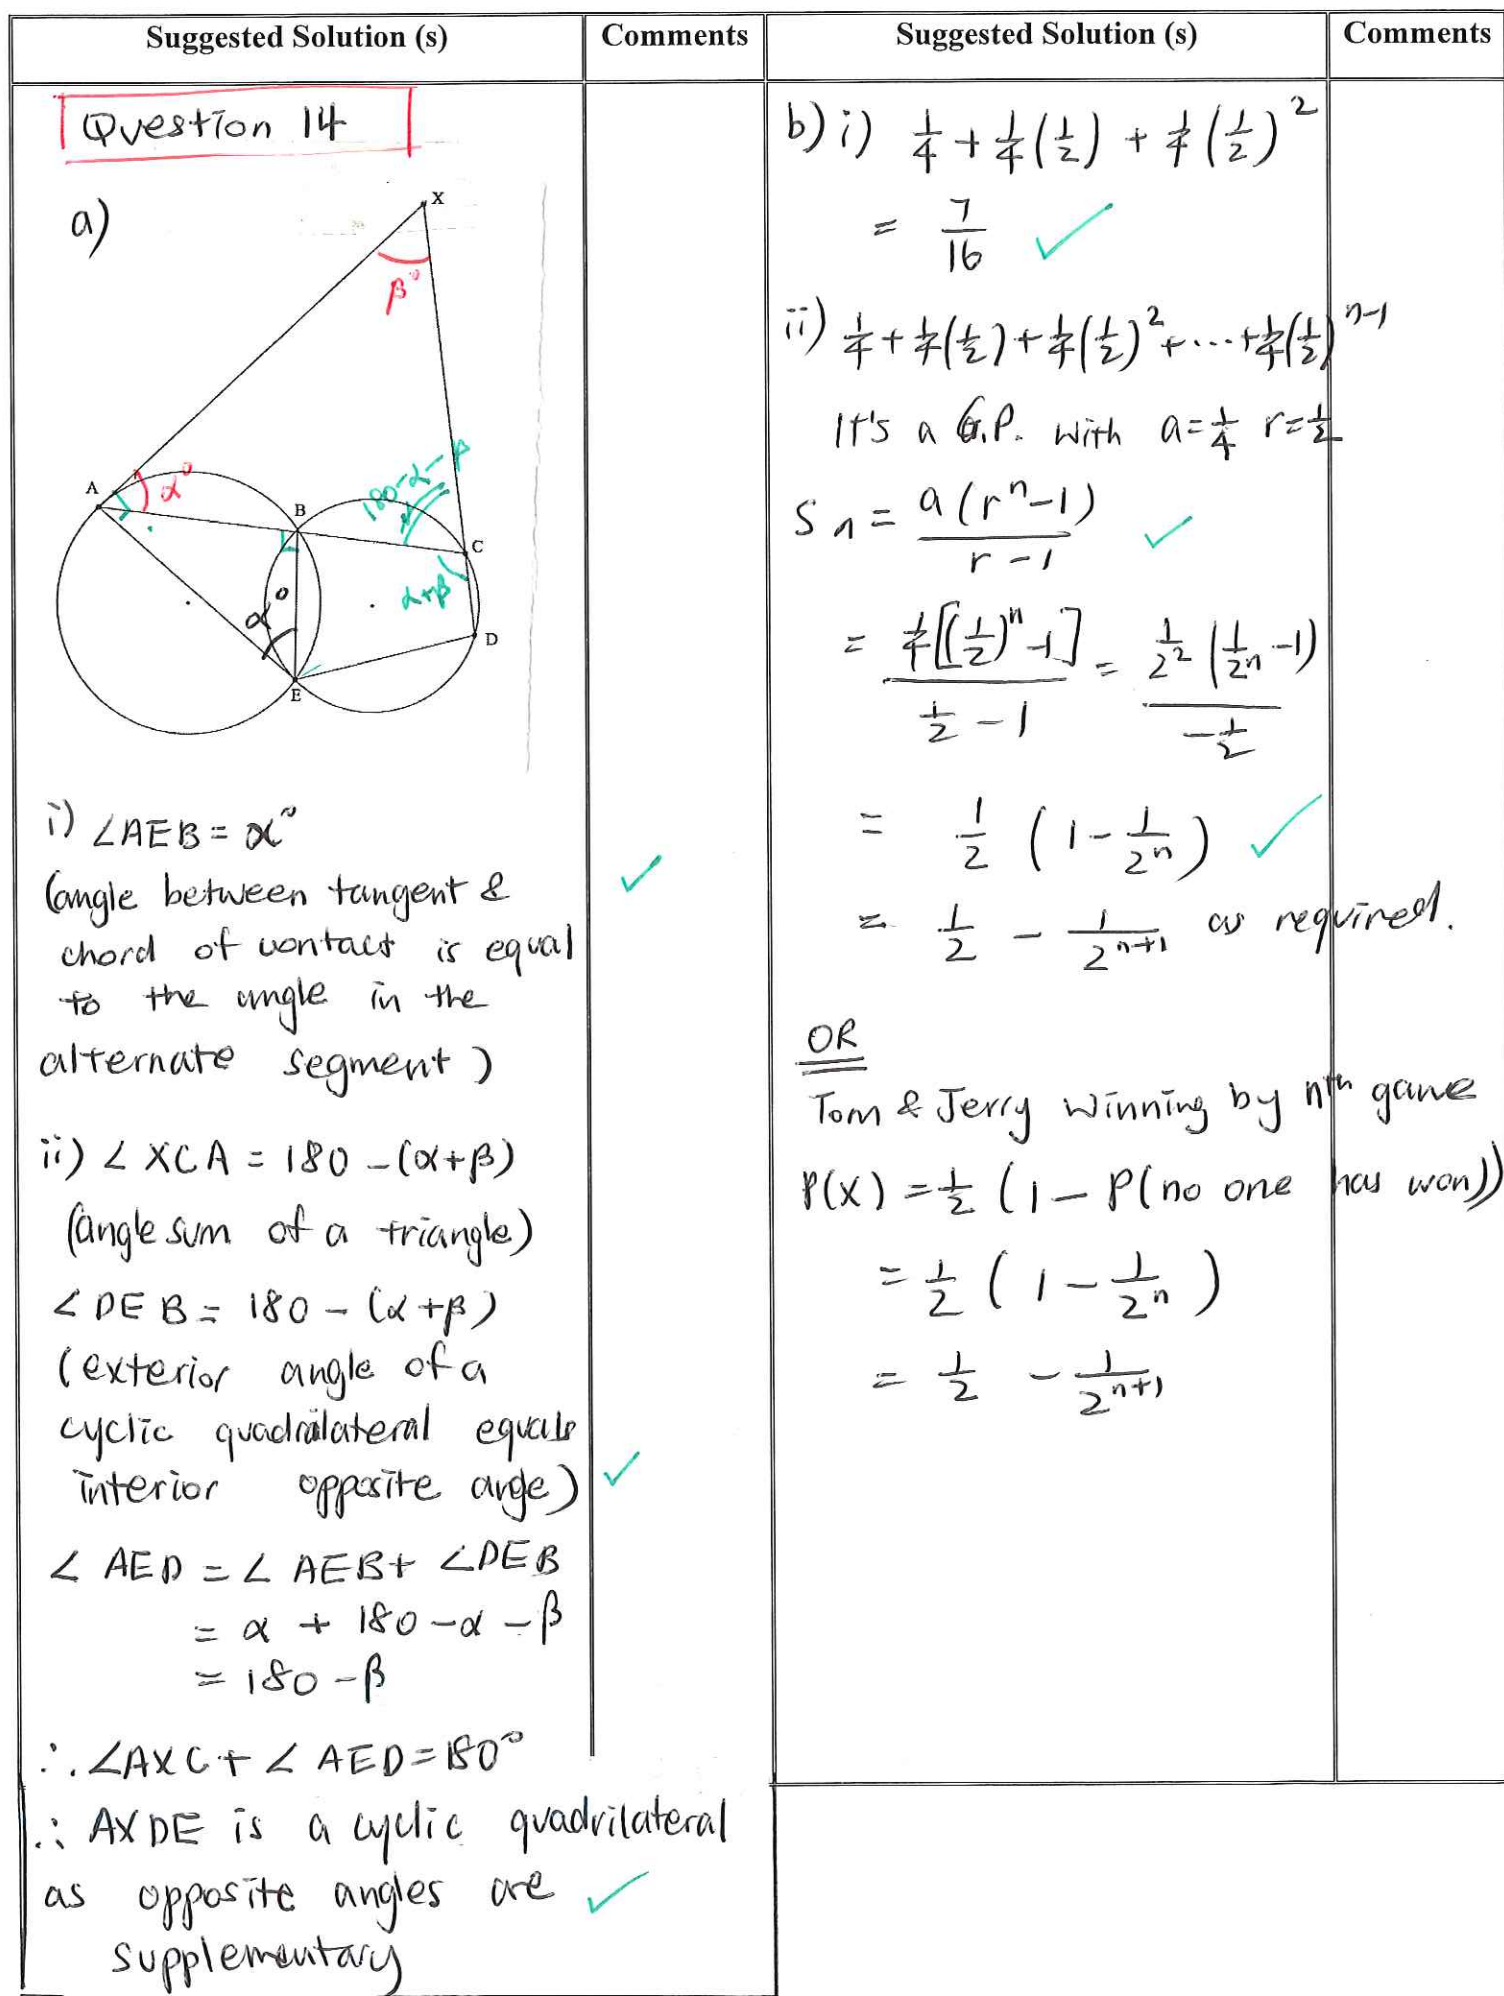 Suggested Solution (s)
Comments
Question 14
a)
X
β°
A
α°
B
180-α-β
C
α+β
α°
D
E
i) ∠AEB = α°
(angle between tangent &
chord of contact is equal
to the angle in the
alternate segment)
ii) ∠XCA = 180 - (α+β)
(angle sum of a triangle)
∠DEB = 180 - (α+β)
(exterior angle of a
cyclic quadrilateral equals
interior opposite angle)
∠AED = ∠AEB + ∠DEB
= α + 180 - α - β
= 180 - β
∴ ∠AXC + ∠AED = 180°
∴ AXDE is a cyclic quadrilateral
as opposite angles are
supplementary
Suggested Solution (s)
Comments
b) i) 1/4 + 1/4(1/2) + 1/4(1/2)²
= 7/16
ii) 1/4 + 1/4(1/2) + 1/4(1/2)² + ... + 1/4(1/2)ⁿ⁻¹
It's a G.P. with a = 1/4 r = 1/2
Sn = a(rⁿ - 1) / r - 1
= 1/4[(1/2)ⁿ - 1] / 1/2 - 1 = 1/2² (1/2ⁿ - 1) / -1/2
= 1/2 (1 - 1/2ⁿ)
= 1/2 - 1/2ⁿ⁺¹ as required.
OR
Tom & Jerry winning by nth game
P(X) = 1/2 (1 - P(no one has won))
= 1/2 (1 - 1/2ⁿ)
= 1/2 - 1/2ⁿ⁺¹